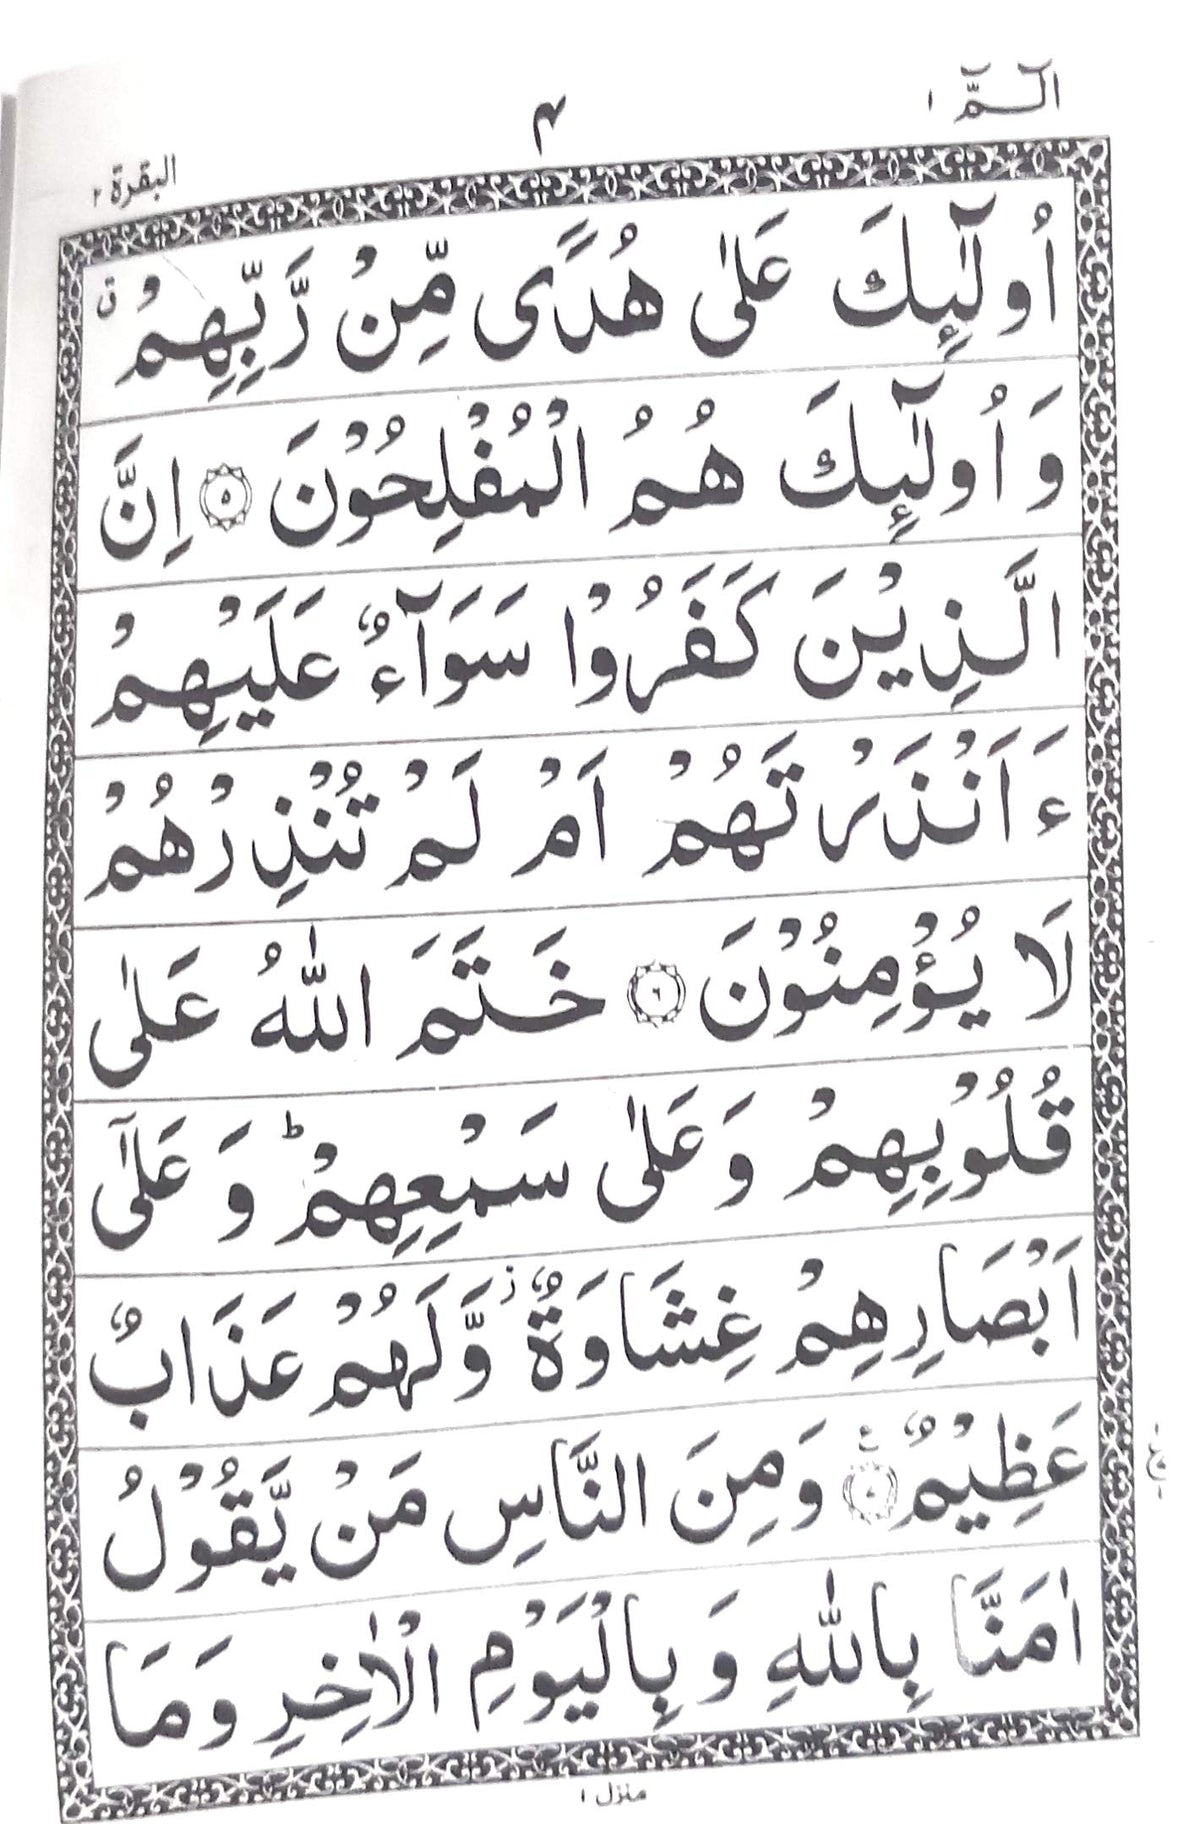 الٓـمّٓ ۱
۴
البقرة ۲
اُولٰٓئِكَ عَلٰی هُدًی مِّنْ رَّبِّهِمْ ۙق
وَ اُولٰٓئِكَ هُمُ الْمُفْلِحُوْنَ ۝۵ اِنَّ
الَّذِیْنَ كَفَرُوْا سَوَآءٌ عَلَیْهِمْ
ءَاَنْذَرْتَهُمْ اَمْ لَمْ تُنْذِرْهُمْ
لَا یُؤْمِنُوْنَ ۝۶ خَتَمَ اللّٰهُ عَلٰی
قُلُوْبِهِمْ وَ عَلٰی سَمْعِهِمْؕ وَ عَلٰۤی
اَبْصَارِهِمْ غِشَاوَةٌ ز وَّ لَهُمْ عَذَابٌ
عَظِیْمٌ ۝۷ ع وَ مِنَ النَّاسِ مَنْ یَّقُوْلُ
اٰمَنَّا بِاللّٰهِ وَ بِالْیَوْمِ الْاٰخِرِ وَ مَا
منزل ۱